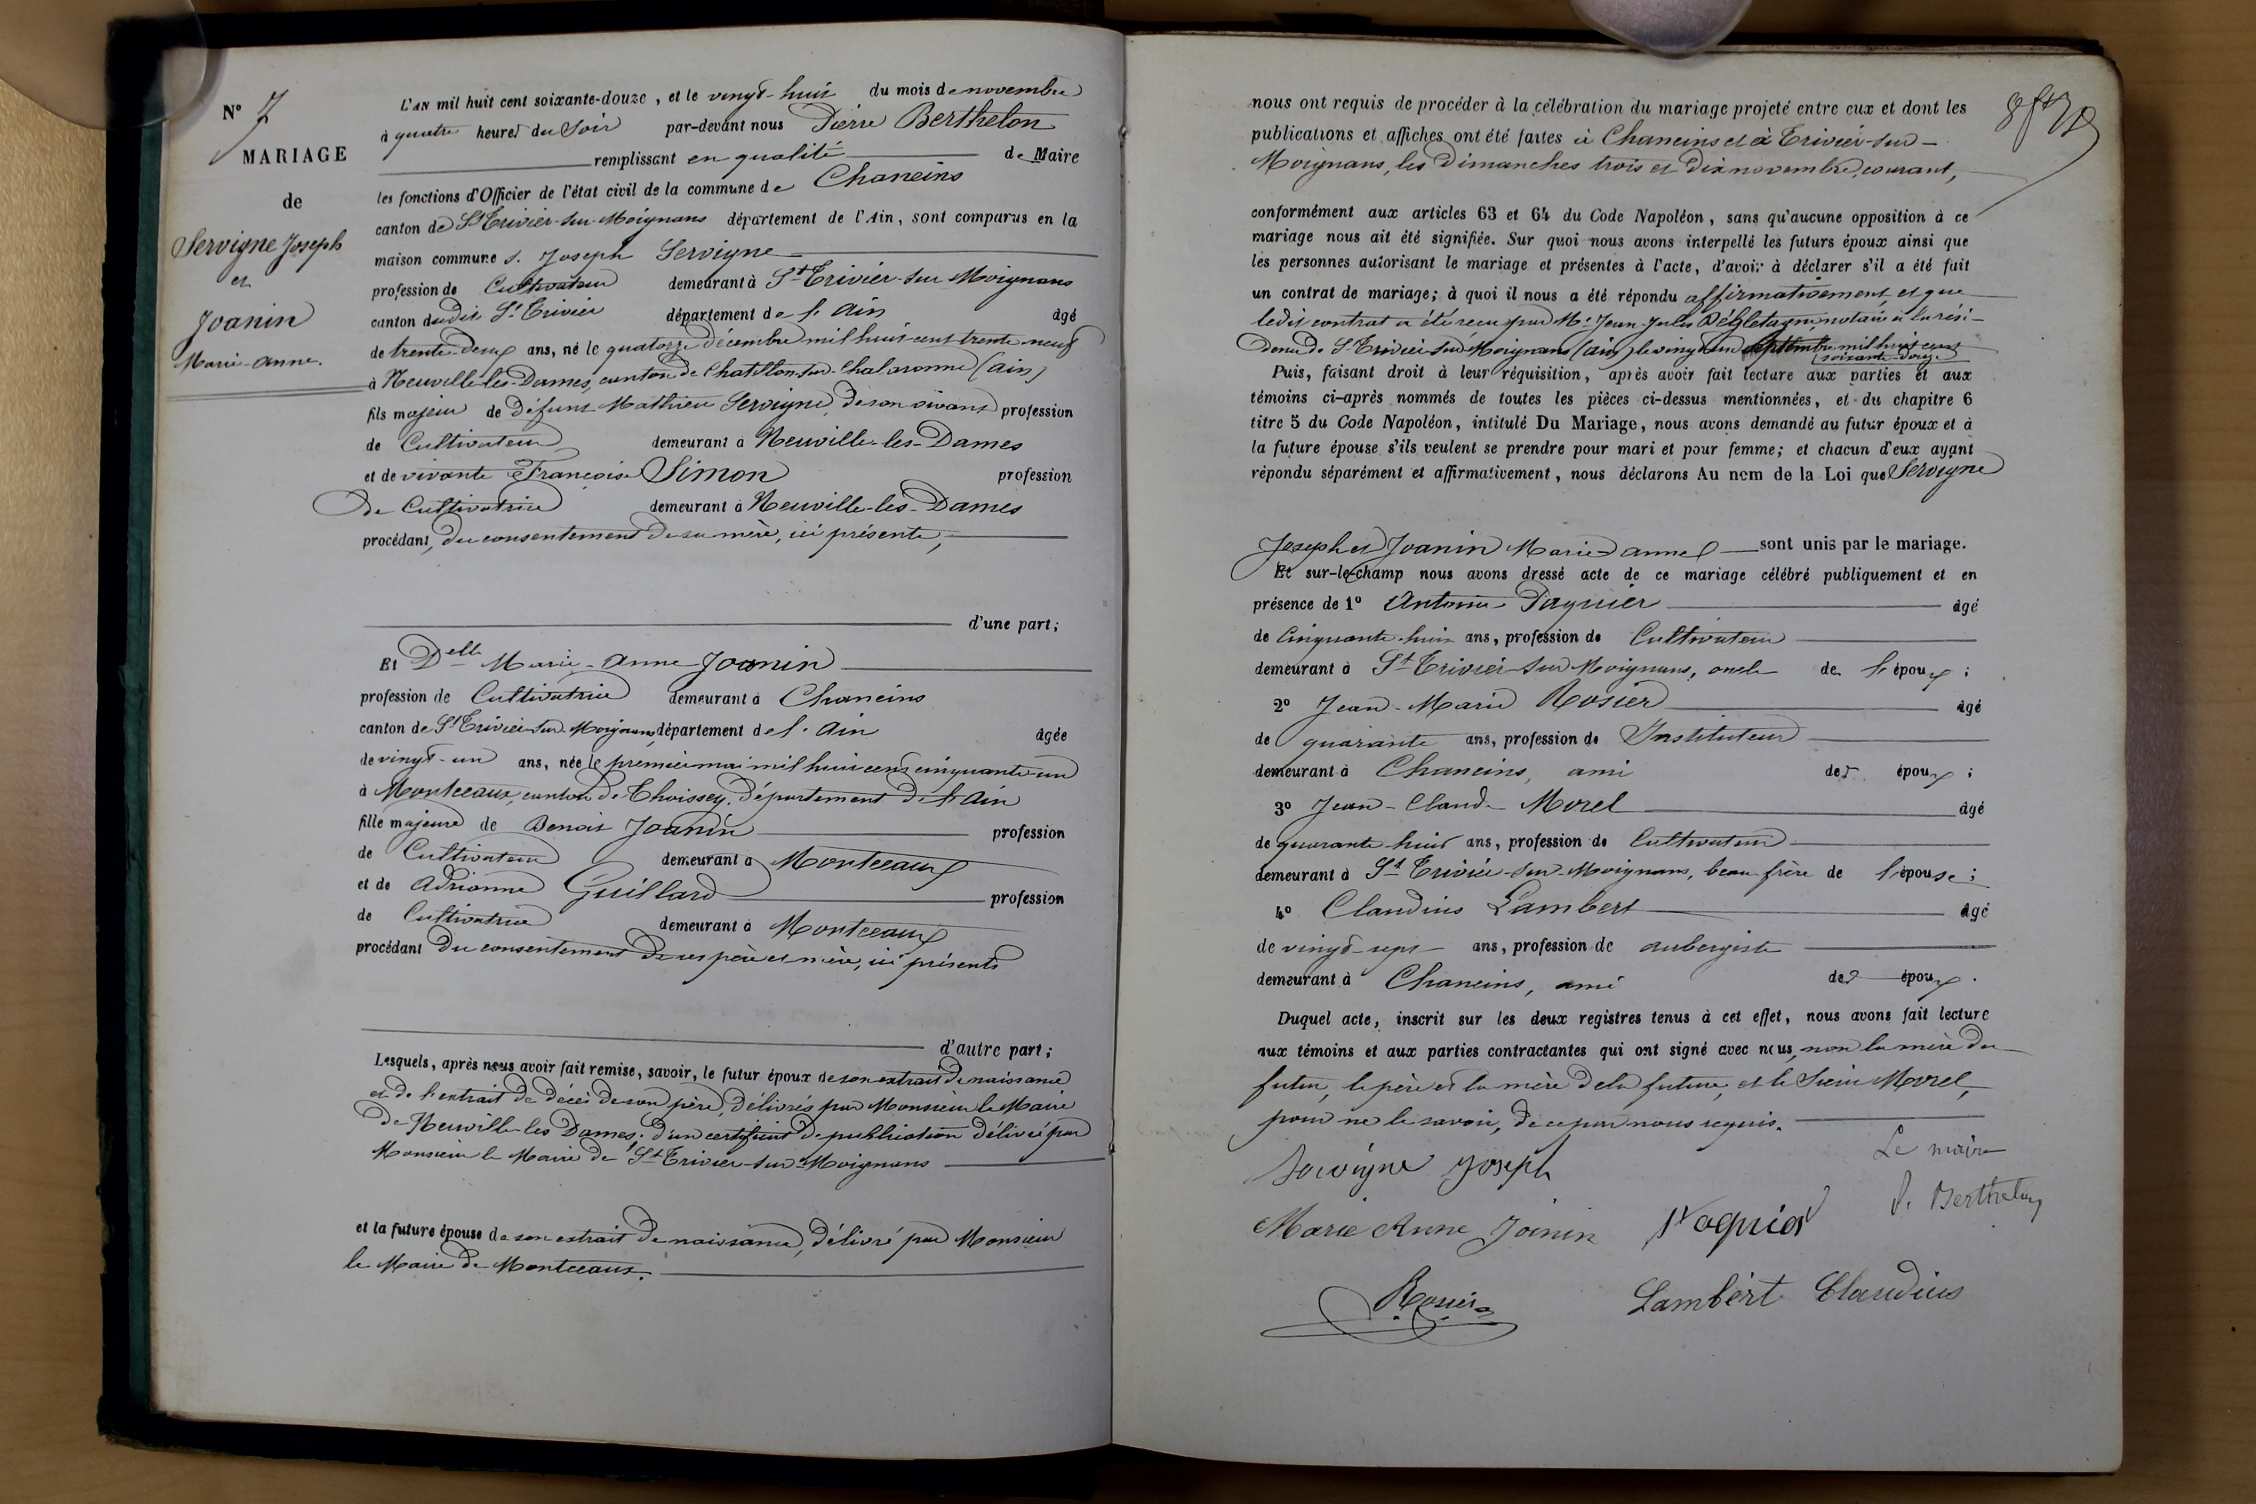 N° 7
MARIAGE
de
Servigne Joseph
et
Joanin
Marie-Anne.
L'AN mil huit cent soixante-douze, et le vingt-huit du mois de novembre
à quatre heures du soir par-devant nous Pierre Berthelon
remplissant en qualité de Maire
les fonctions d'Officier de l'état civil de la commune de Chaneins
canton de St Trivier-sur-Moignans département de l'Ain, sont comparus en la
maison commune s. Joseph Servigne
profession de Cultivateur demeurant à St Trivier-sur-Moignans
canton dudit St Trivier département de l'Ain âgé
de trente-deux ans, né le quatorze décembre mil huit cent trente-neuf
à Neuville-les-Dames, canton de Chatillon-sur-Chalaronne (Ain)
fils majeur de défunt Mathieu Servigne, de son vivant profession
de Cultivateur demeurant à Neuville-les-Dames
et de vivante Françoise Simon profession
de Cultivatrice demeurant à Neuville-les-Dames
procédant, du consentement de sa mère, ici présente,
d'une part;
Et Delle Marie-Anne Joanin
profession de Cultivatrice demeurant à Chaneins
canton de St Trivier-sur-Moignans, département de l'Ain âgée
de vingt-un ans, née le premier mai mil huit cent cinquante-un
à Montceaux, canton de Thoissey, département de l'Ain
fille majeure de Benoit Joanin profession
de Cultivateur demeurant à Montceaux
et de Adrianne Guillard profession
de Cultivatrice demeurant à Montceaux
procédant du consentement de ses père et mère, ici présents
d'autre part;
Lesquels, après nous avoir fait remise, savoir, le futur époux de son extrait de naissance
et de l'extrait de décès de son père, délivrés par Monsieur le Maire
de Neuville-les-Dames; d'un certificat de publication délivré par
Monsieur le Maire de St Trivier-sur-Moignans
et la future épouse de son extrait de naissance, délivré par Monsieur
le Maire de Montceaux.
nous ont requis de procéder à la célébration du mariage projeté entre eux et dont les
publications et affiches ont été faites à Chaneins et à Trivier-sur-
Moignans, les Dimanches trois et dix novembre, courant,
conformément aux articles 63 et 64 du Code Napoléon, sans qu'aucune opposition à ce
mariage nous ait été signifiée. Sur quoi nous avons interpellé les futurs époux ainsi que
les personnes autorisant le mariage et présentes à l'acte, d'avoir à déclarer s'il a été fait
un contrat de mariage; à quoi il nous a été répondu affirmativement, et que
ledit contrat a été reçu par Me Jean Jules notaire à la rési-
dence de St Trivier-sur-Moignans (Ain) le vingt-un septembre mil huit cent
soixante-douze.
Puis, faisant droit à leur réquisition, après avoir fait lecture aux parties et aux
témoins ci-après nommés de toutes les pièces ci-dessus mentionnées, et du chapitre 6
titre 5 du Code Napoléon, intitulé Du Mariage, nous avons demandé au futur époux et à
la future épouse s'ils veulent se prendre pour mari et pour femme; et chacun d'eux ayant
répondu séparément et affirmativement, nous déclarons Au nom de la Loi que Servigne
Joseph et Joanin Marie-Anne sont unis par le mariage.
Et sur-le-champ nous avons dressé acte de ce mariage célébré publiquement et en
présence de 1° Antoine Paquier âgé
de Cinquante-huit ans, profession de Cultivateur
demeurant à St Trivier-sur-Moignans, oncle de l'époux;
2° Jean-Marie Rosier âgé
de quarante ans, profession de Instituteur
demeurant à Chaneins, ami des époux;
3° Jean-Claude Morel âgé
de quarante-huit ans, profession de Cultivateur
demeurant à St Trivier-sur-Moignans, beau-frère de l'épouse;
4° Claudius Lambert âgé
de vingt-sept ans, profession de aubergiste
demeurant à Chaneins, ami des époux.
Duquel acte, inscrit sur les deux registres tenus à cet effet, nous avons fait lecture
aux témoins et aux parties contractantes qui ont signé avec nous, non la mère du
futur, le père et la mère de la future, et le sieur Morel,
pour ne le savoir, de ce par nous requis.
Servigne Joseph
Le maire
P. Berthelon
Marie Anne Joinin
Paquier
Rosier
Lambert Claudius